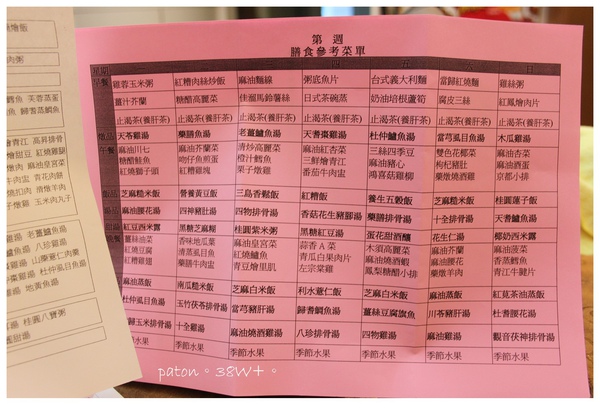 第 週
膳食參考菜單
星期 一 二 三 四 五 六 日
早餐 雞蓉玉米粥 紅糟肉絲炒飯 麻油麵線 粥底魚片 台式義大利麵 當歸紅燒麵 雞絲粥
薑汁芥蘭 糖醋高麗菜 佳溜馬鈴薯絲 日式茶碗蒸 奶油培根蘆筍 腐皮三絲 紅鳳燴肉片
止渴茶(養肝茶) 止渴茶(養肝茶) 止渴茶(養肝茶) 止渴茶(養肝茶) 止渴茶(養肝茶) 止渴茶(養肝茶) 止渴茶(養肝茶)
燉品 天苓雞湯 藥膳魚湯 老薑鱸魚湯 天耆棗雞湯 杜仲鱸魚湯 當芎虱目魚湯 木瓜雞湯
午餐 麻油川七 麻油芥蘭菜 清炒高麗菜 麻油紅菜 三絲四季豆 雙色花椰菜 麻油杏菜
糖醋鮭魚 吻仔魚煎蛋 橙汁鱈魚 三鮮燴青江 麻油豬心 枸杞豬肚 麻油酒蛋
紅燒獅子頭 紅糟雞塊 栗子燉雞 番茄牛肉盅 鴻喜菇雞柳 藥燉燒酒雞 京都小排
芝麻糙米飯 營養黃豆飯 三島香鬆飯 紅糟飯 養生五穀飯 芝麻糙米飯 桂圓蓮子飯
麻油腰花湯 四神豬肚湯 四物排骨湯 香菇花生豬腳湯 藥膳排骨湯 十全排骨湯 天耆鱸魚湯
紅豆西米露 黑糖芝麻糊 桂圓紫米粥 黑糖紅豆湯 蛋花甜酒釀 花生仁湯 椰奶西米露
晚餐 薑絲油菜 香味地瓜葉 麻油皇宮菜 蒜香A菜 木須高麗菜 麻油芥蘭 麻油菠菜
紅燒豆腐 清蒸鱈魚 紅燒鱸魚 青瓜白果肉片 麻油燒酒蝦 麻油腰花 香蒸鱈魚
紅燒雞翅 藥膳牛肉盅 青豆燴里肌 左宗棠雞 鳳梨糖醋小排 藥燉羊肉 青江牛腱片
麻油蒸飯 南瓜糙米飯 芝麻白米飯 利水薏仁飯 芝麻白米飯 麻油蒸飯 紅莧茶油蒸飯
杜仲虱目魚湯 玉竹茯苓排骨湯 當芎豬肝湯 歸耆鯛魚湯 薑絲豆腐旗魚 川芎豬肝湯 杜耆腰花湯
歸玉米排骨湯 十全雞湯 麻油燒酒雞湯 八珍排骨湯 四物雞湯 麻油雞湯 觀音茯神排骨湯
季節水果 季節水果 季節水果 季節水果 季節水果 季節水果 季節水果
paton。38W+。